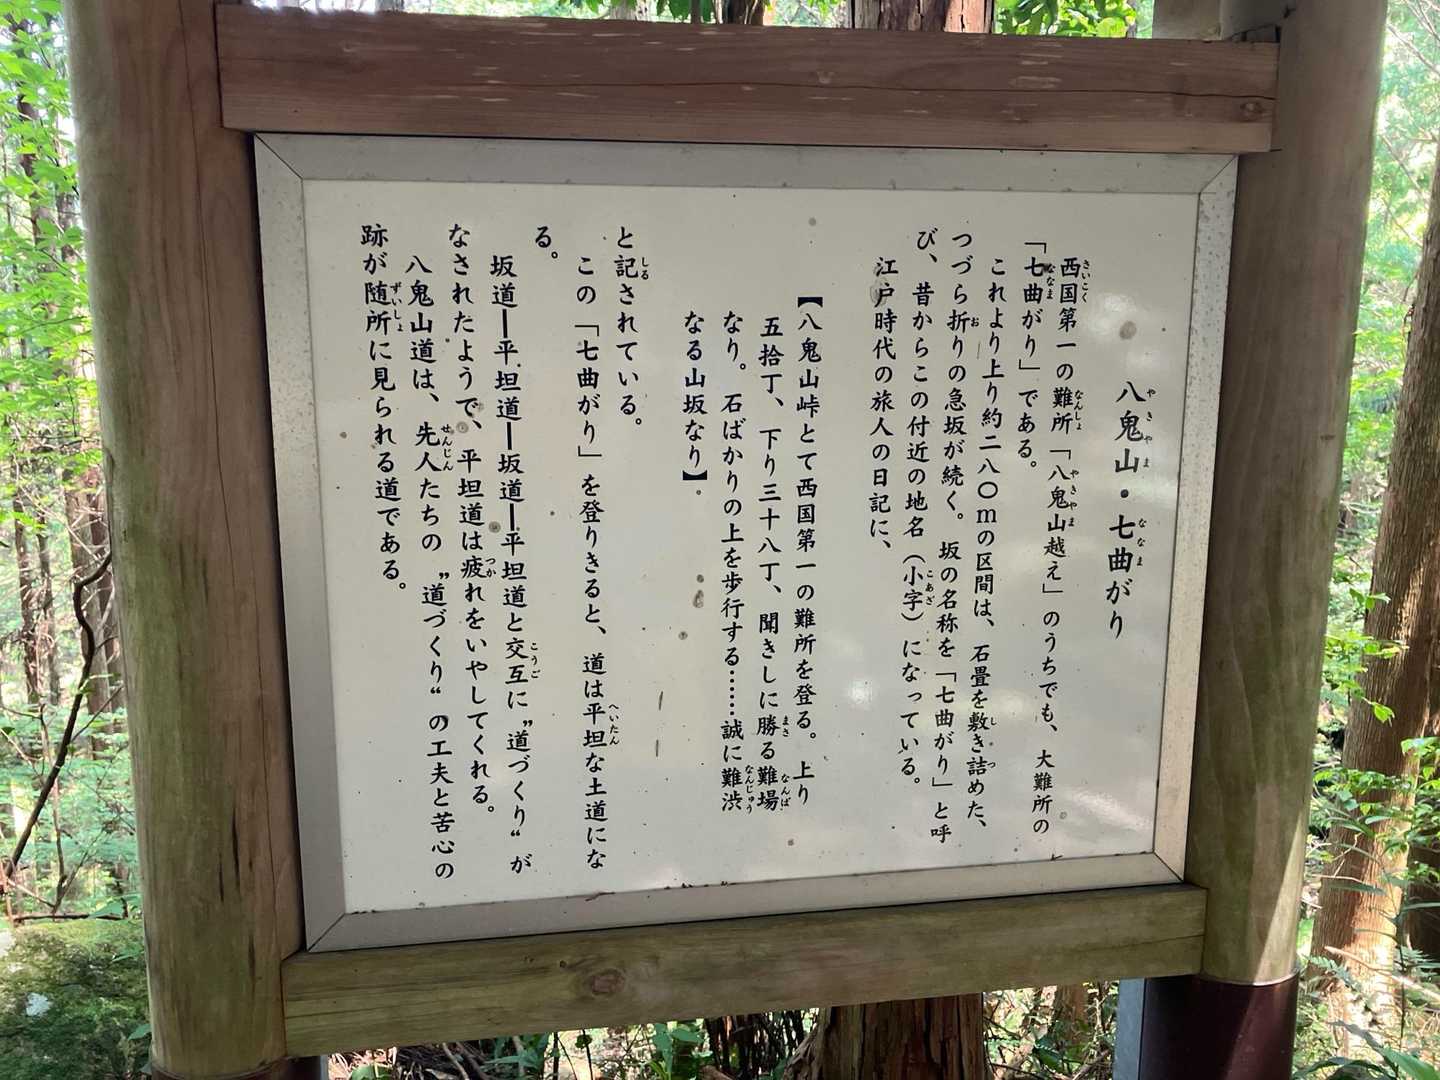 八鬼山・七曲がり
西国第一の難所「八鬼山越え」のうちでも、大難所の
「七曲がり」である。
これより上り約二八〇mの区間は、石畳を敷き詰めた、
つづら折りの急坂が続く。坂の名称を「七曲がり」と呼
び、昔からこの付近の地名（小字）になっている。
江戸時代の旅人の日記に、
【八鬼山峠とて西国第一の難所を登る。上り
五拾丁、下り三十八丁、聞きしに勝る難場
なり。石ばかりの上を歩行する……誠に難渋
なる山坂なり】
と記されている。
この「七曲がり」を登りきると、道は平坦な土道にな
る。
坂道―平坦道―坂道―平坦道と交互に〝道づくり〟が
なされたようで、平坦道は疲れをいやしてくれる。
八鬼山道は、先人たちの〝道づくり〟の工夫と苦心の
跡が随所に見られる道である。